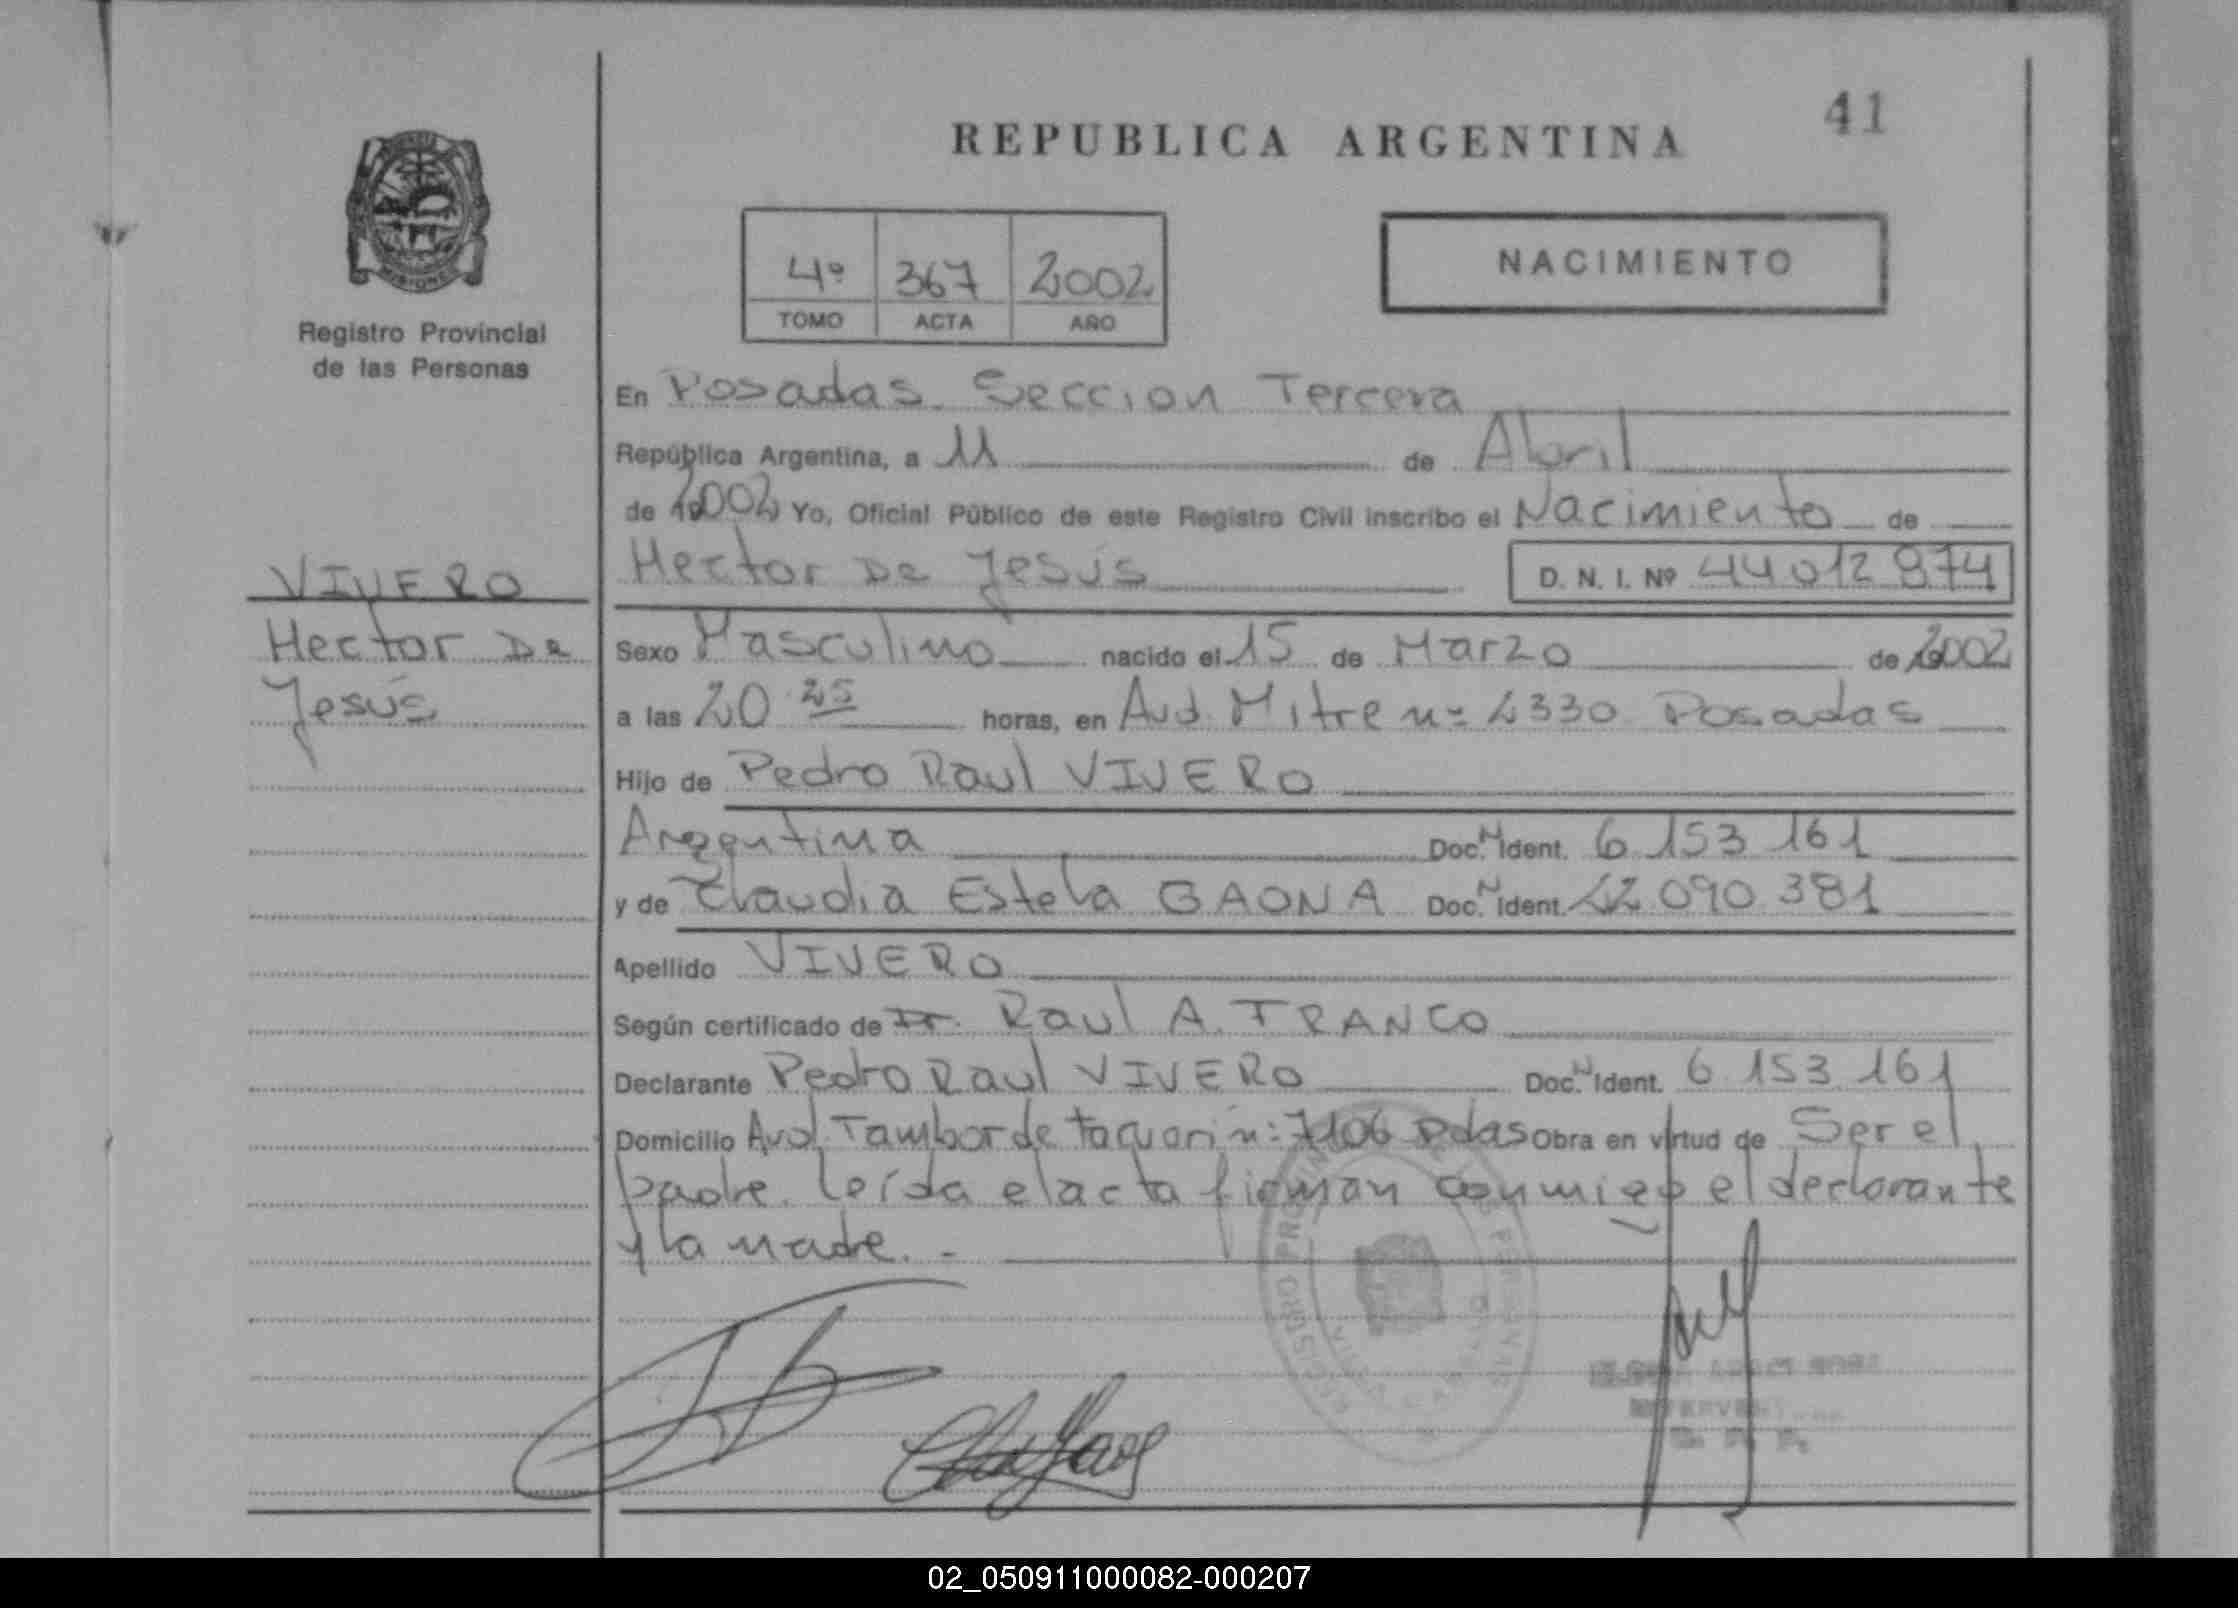 41
REPUBLICA ARGENTINA
NACIMIENTO
4º 367 2002
TOMO ACTA AÑO
MISIONES
Registro Provincial
de las Personas
En Posadas. Seccion Tercera
República Argentina, a 11 de Abril
de 2002 Yo, Oficial Público de este Registro Civil inscribo el Nacimiento de
Hector De Jesús D. N. I. Nº 44 012 974
VIVERO
Hector De
Jesús
Sexo Masculino nacido el 15 de Marzo de 2002
a las 20 25 horas, en Avd. Mitre nº 2330 Posadas
Hijo de Pedro Raul VIVERO
Argentina Doc. N Ident. 6 153 161
y de Claudia Estela GAONA Doc. N Ident. 22 090 381
Apellido VIVERO
Según certificado de Dr. Raul A. FRANCO
Declarante Pedro Raul VIVERO Doc. N Ident. 6 153 161
Domicilio Avd. Tambor de tacuari n: 7106 Pdas Obra en virtud de Ser el
padre. leída el acta firman conmigo el declarante
y la madre. -
REGISTRO PROVINCIAL DE LAS PERSONAS
02_050911000082-000207